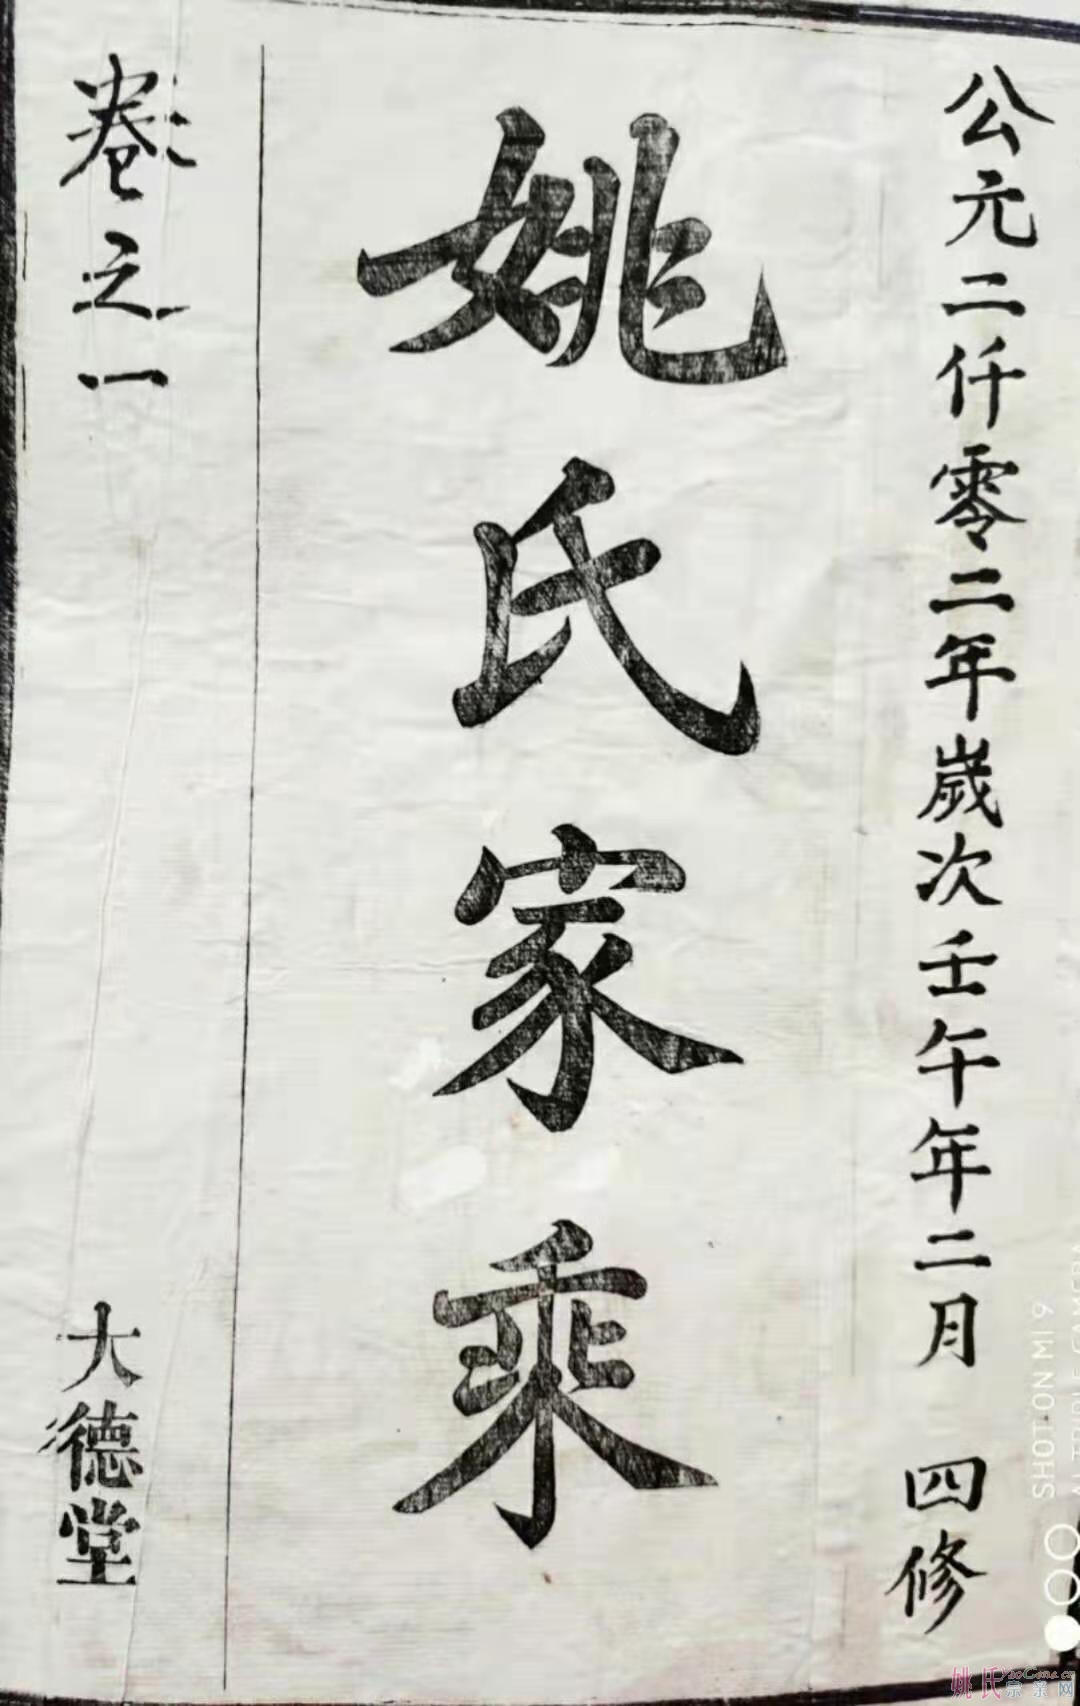 公元二仟零二年歲次壬午年二月 四修
姚氏家乘
卷之一 大德堂
SHOT ON MI 9
AI TRIPLE CAMERA
姚氏宗亲网
YaoGens.cn